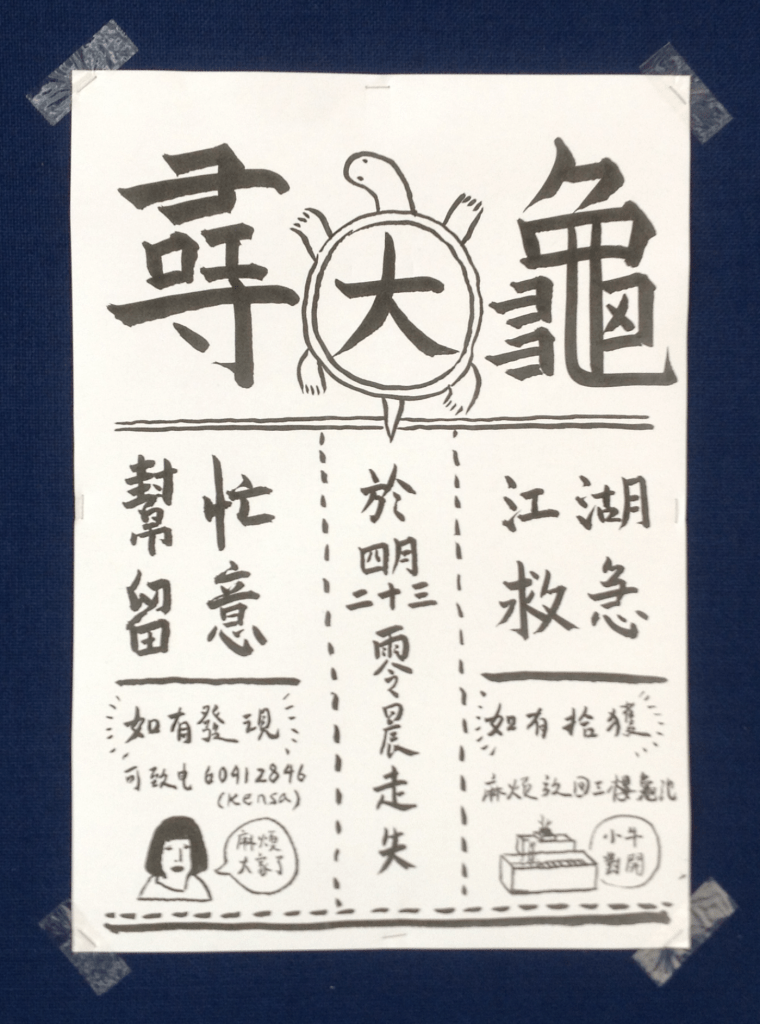 尋大龜
幫忙
留意
於
四月
二十三
零晨走失
江湖
救急
如有發現
可致电 60412846
(Kensa)
麻煩
大家了
如有拾獲
麻煩放回三樓龜池
小牛
對開